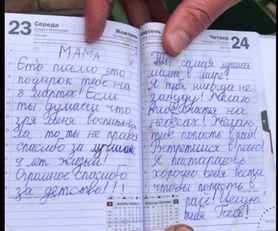 23 Середа
Жовтень
МАМА
Это письмо это
подарок тебе на
8 марта! Если
ты думаеш что
зря меня воспитывала
то ты не права
спасибо за лучшие
9 лет жизни!
Огромное спасибо
за детство!!!
Четвер 24
Ты самая лучшая
мама в мире!
Я тебя никогда не
забуду! Желаю
на
небесах!
тебе попасть в рай!
Встретимся в раю!
Я постараюсь
хорошо себя вести
чтобы попасть в
рай! Целую
тебя